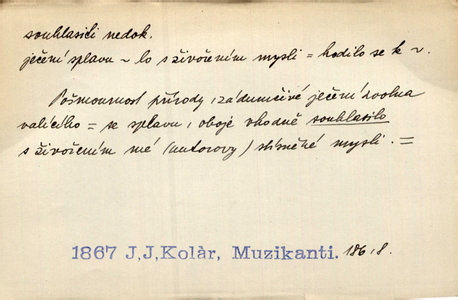 souhlasiti nedok.
ječení splavu ~ lo s živořením mysli = hodilo se k ~.
Pošmournost přírody, zádumčivé ječení zvolna
valícího = se splavu, oboje vhodně souhlasilo
s živořením mé (autorovy) stísněné mysli. =
1867 J,J,Kolàr, Muzikanti. 186,8.